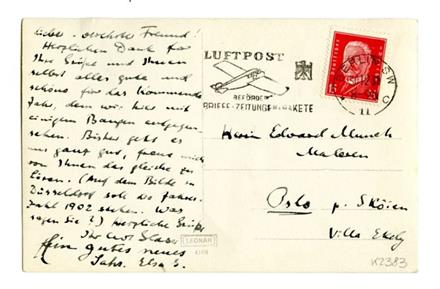 Lieber, verehrter Freund!
Herzlichen Dank für
Ihre Grüße und Ihnen
selbst alles gute und
schöne für das kommende
Jahr, dem wir hier mit
einigem Bangen entgegen-
sehen. Bisher geht es
uns ganz gut, freue mich
von Ihnen das gleiche zu
lesen. (Auf dem Bilde in
Düsseldorf soll die Jahres-
zahl 1902 stehen. Was
sagen Sie?) Herzliche Grüße
Ihr Curt Glaser
Ein gutes neues
Jahr. Elsa G.
LUFTPOST
BEFÖRDERT
BRIEFE·ZEITUNGEN·PAKETE
BERLIN SW
11
15
Herrn Edvard Munch
Maleren
Oslo p. Sköien
Villa Ekely
LEONAR
K2383